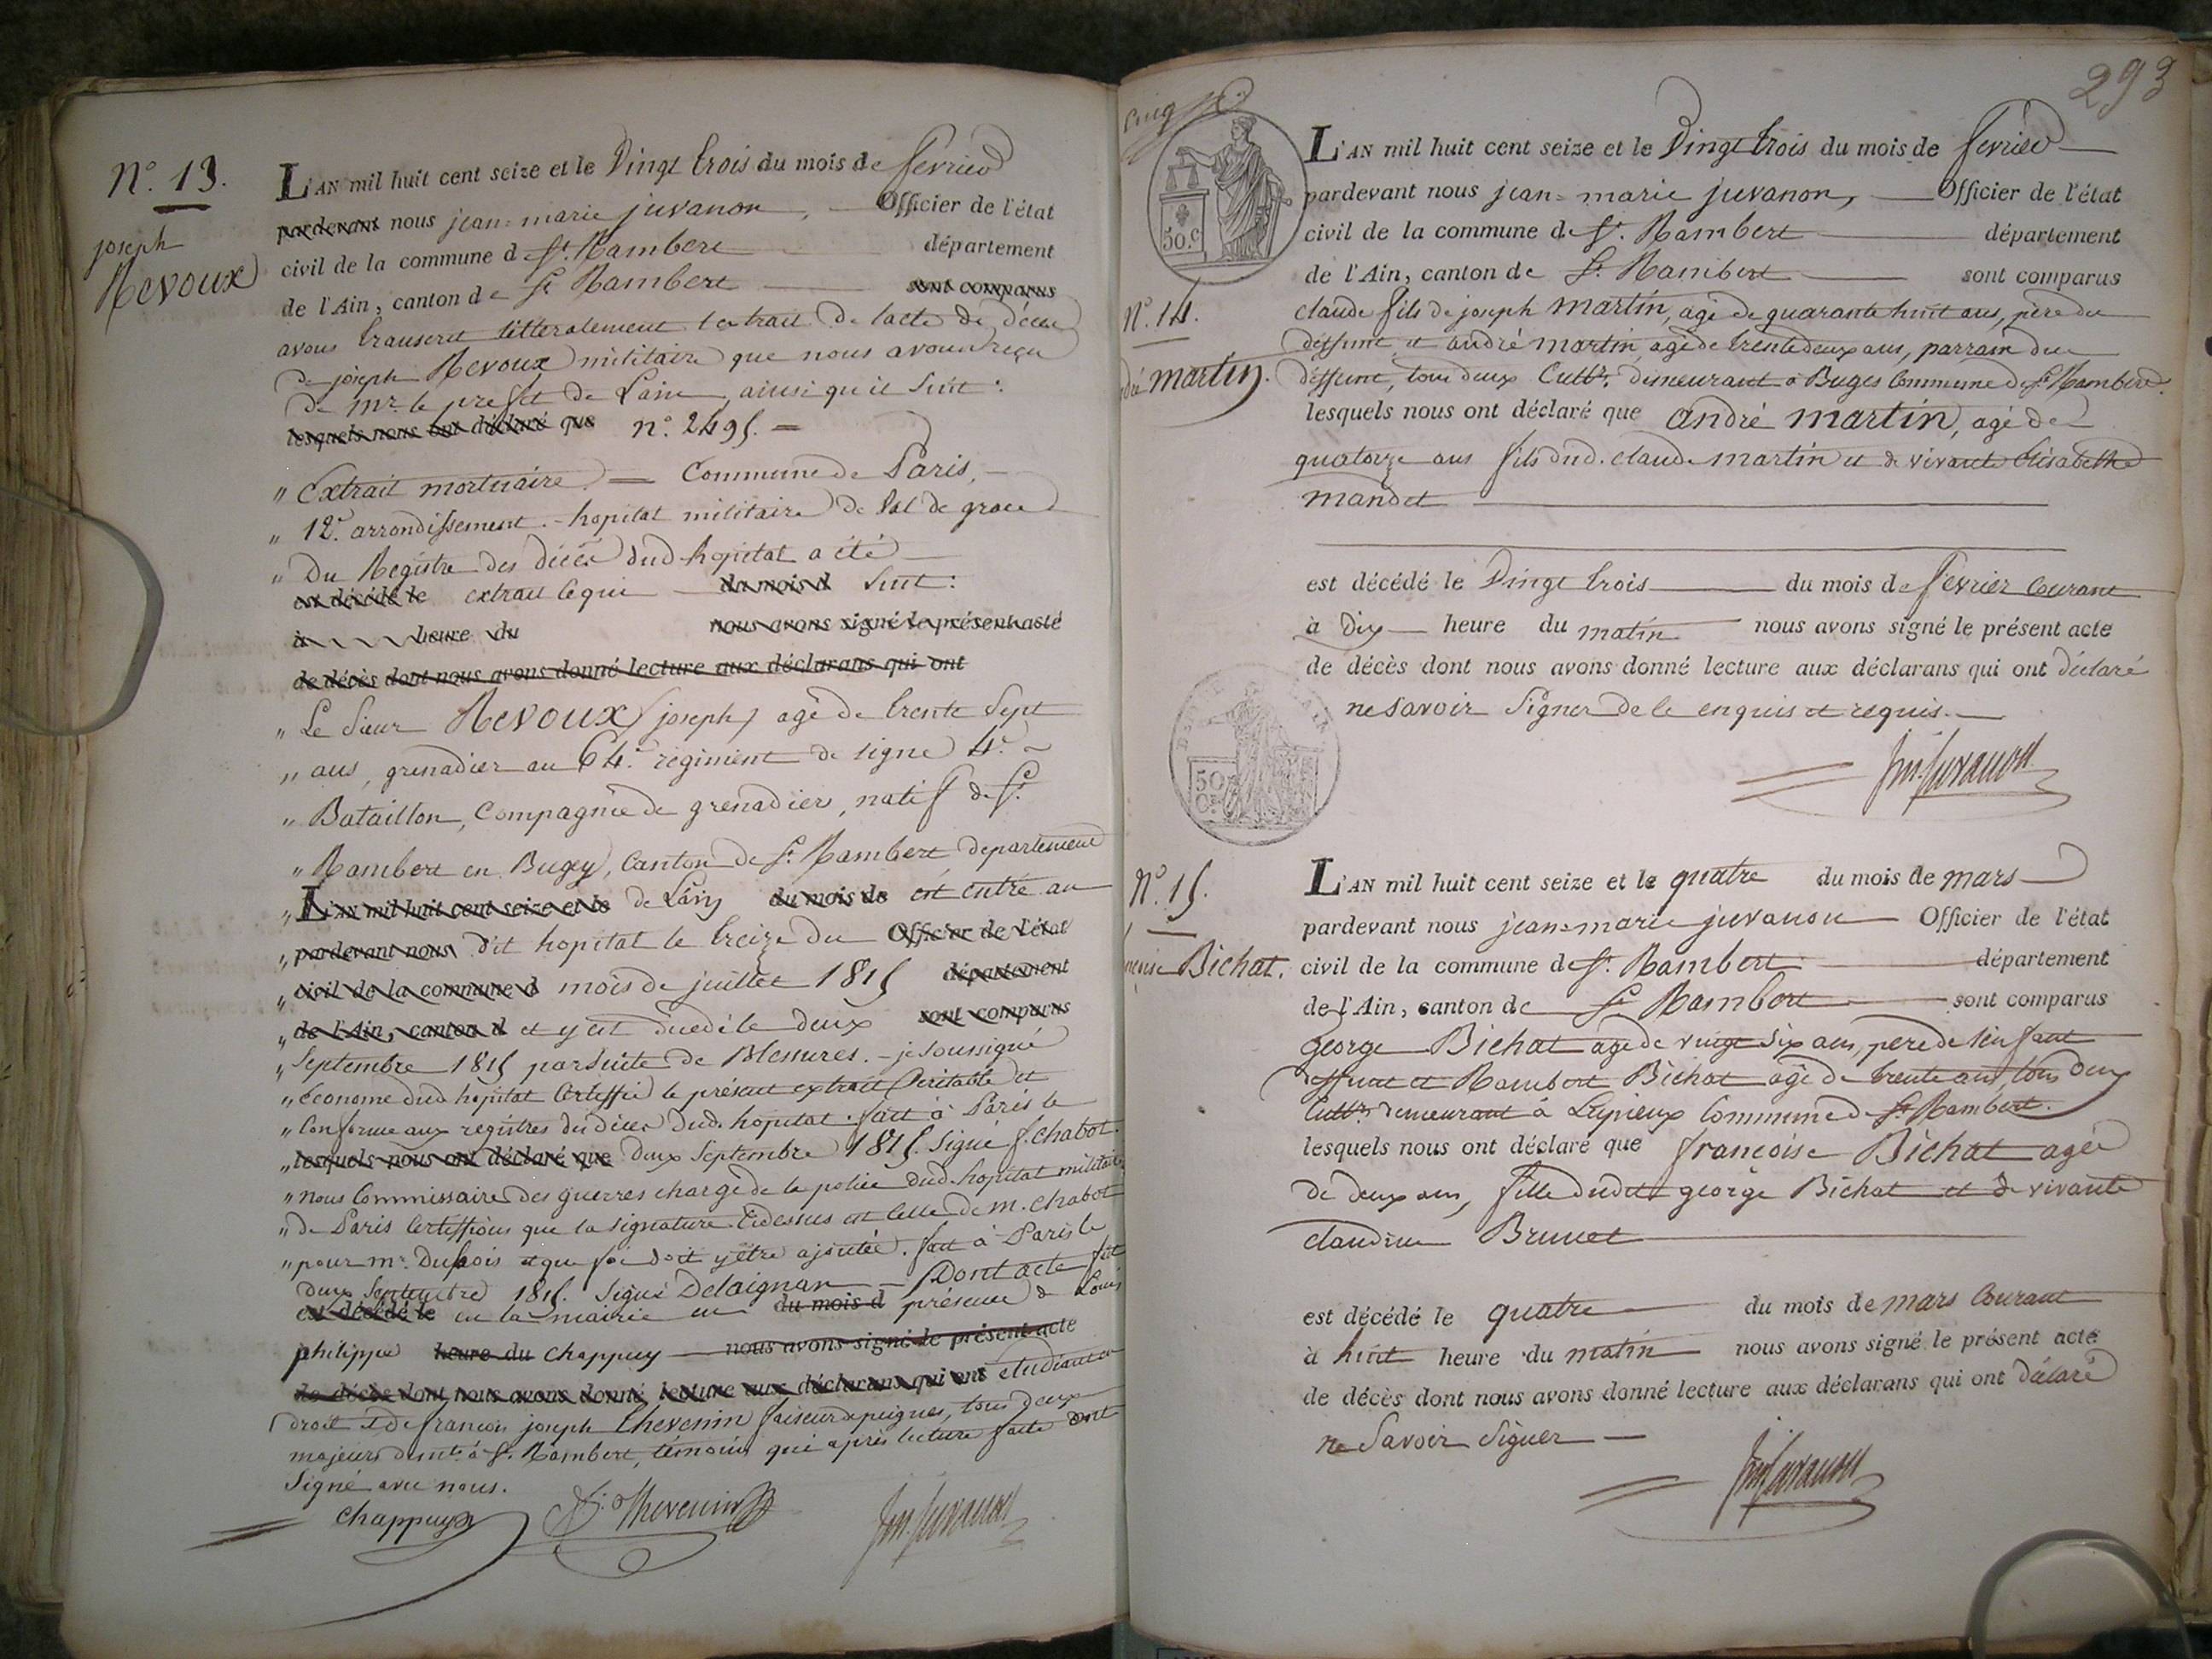 N.° 13.
joseph
Revoux
L'AN mil huit cent seize et le Vingt trois du mois de fevrier
pardevant nous jean-marie juvanon, Officier de l'état
civil de la commune d St. Rambert département
de l'Ain, canton de St Rambert sont comparus
avons transcrit litteralement l'extrait de l'acte de décès
de joseph Revoux militaire que nous avons reçu
de mr. le prefet de L'ain, ainsi qu'il suit :
lesquels nous ont déclaré que n.° 2495. =
" Extrait mortuaire = Commune de Paris,
" 12e. arrondissement. - hopital militaire de Val de grace
" Du Registre des décès dud. hopital a été
est décédé le extrait ce qui du mois d suit :
à heure du nous avons signé le présent acte
de décès dont nous avons donné lecture aux déclarans qui ont
" Le Sieur Revoux (joseph) agé de trente sept
" ans, grenadier au 64e. régiment de ligne 4e.
" Bataillon, Compagnie de grenadiers, natif de St.
" Rambert en Bugey, Canton de St. Rambert departement
" L'AN mil huit cent seize et le de L'ain du mois de est entré au
" pardevant nous dit hopital le treize du Officier de l'état
" civil de la commune d mois de juillet 1815 département
" de l'Ain, canton d et y est décédé le deux sont comparus
" Septembre 1815 par suite de Blessures. - je soussigné
" économe dud. hopital Certiffie le présent extrait Veritable et
" Conforme aux registres de décès dud. hopital. fait à Paris le
" lesquels nous ont déclaré que deux Septembre 1815. Signé f. chabot.
" nous Commissaire des guerres chargé de la police dud. hopital militaire
" de Paris Certiffions que la signature Cidessus est Celle de m. chabot
" pour mr. Dubois et que foi doit y être ajoutée. fait à Paris le
deux Septembre 1815. Signé Delaignan - Dont acte fait
est décédé le en la mairie en du mois d présence de Louis
philippe heure du chappuy nous avons signé le présent acte
de décès dont nous avons donné lecture aux déclarans qui ont étudiant en
droit et de francois joseph thevenin faiseur de peignes, tous deux
majeurs demts. à St. Rambert, témoins qui après lecture faite ont
Signé avec nous.
chappuy Thevenin Jm. Juvanon
293
50.c
N.° 14.
martin.
L'AN mil huit cent seize et le Vingt trois du mois de fevrier
pardevant nous jean-marie juvanon, Officier de l'état
civil de la commune de St. Rambert département
de l'Ain, canton de St. Rambert sont comparus
claude fils de joseph martin, agé de quarante huit ans, père du
deffunt et andré martin agé de trente deux ans, parrain du
deffunt, tous deux Cultrs. demeurant à Buges Commune de St. Rambert.
lesquels nous ont déclaré que andré martin, agé de
quatorze ans fils dud. claude martin et de vivante Elisabeth
mandet
est décédé le Vingt trois du mois de fevrier Courant
à Dix heure du matin nous avons signé le présent acte
de décès dont nous avons donné lecture aux déclarans qui ont déclaré
ne savoir Signer de ce enquis et requis.
Jm. Juvanon
50
C.
N.° 15.
Bichat.
L'AN mil huit cent seize et le quatre du mois de mars
pardevant nous jean-marie juvanon Officier de l'état
civil de la commune de St. Rambert département
de l'Ain, canton de St Rambert sont comparus
George Bichat agé de vingt six ans, pere de l'enfant
deffunt et Rambert Bichat agé de trente ans, tous deux
Cultrs. demeurant à Lupieux Commune de St Rambert.
lesquels nous ont déclaré que francoise Bichat agée
de deux ans, fille dudit george Bichat et de vivante
claudine Brunet
est décédé le quatre du mois de mars Courant
à huit heure du matin nous avons signé le présent acte
de décès dont nous avons donné lecture aux déclarans qui ont déclaré
ne Savoir Signer
Jm Juvanon